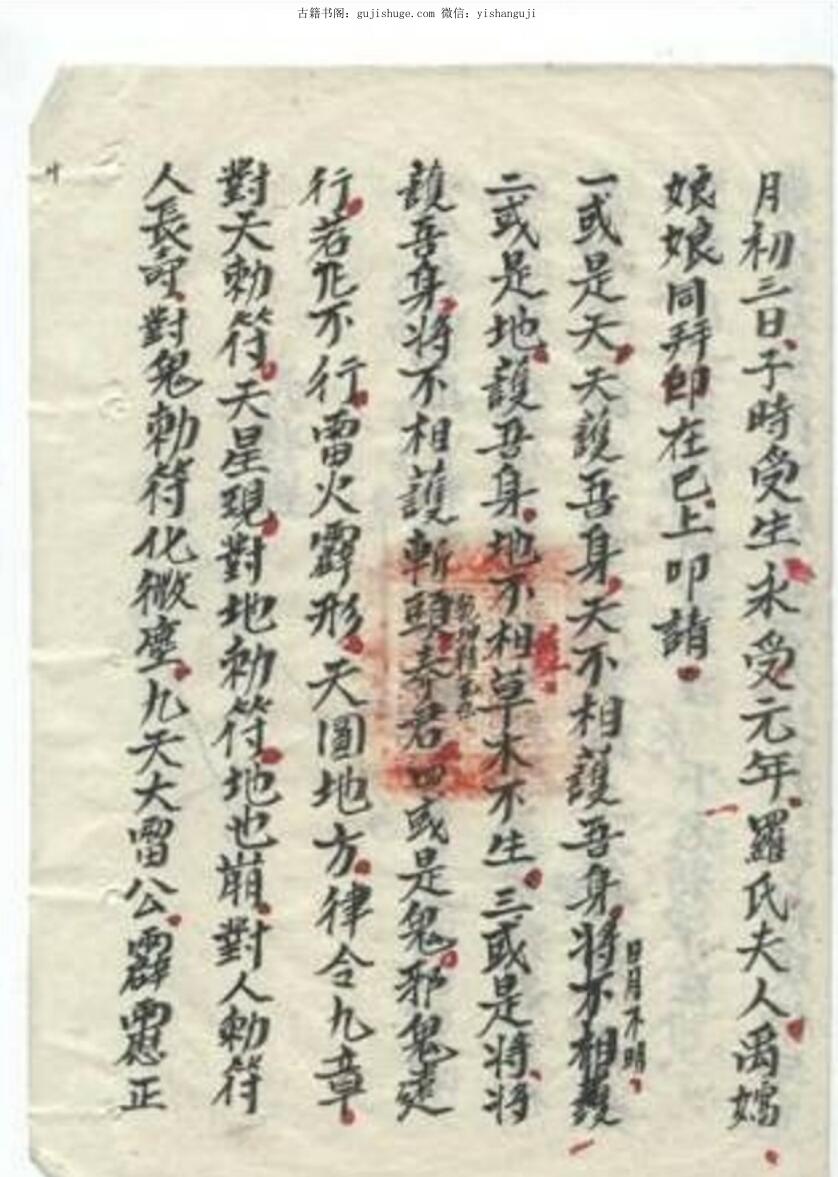 古籍书阁：gujishuge.com 微信：yishanguji
月初三日子時受生永受元年羅氏夫人禹
娘娘同拜印在己上叩請
一或是天天護吾身天不相護吾身將不相護
日月不明
二或是地護吾身地不相草木不生三或是將將
護吾身將不相護斬頭奉君四或是鬼邪鬼遠
行若不行雷火霹形天圓地方律令九章
對天勅符天星現對地勅符地也崩對人勅符
人長壽對鬼勅符化微塵九天大雷公霹靂正